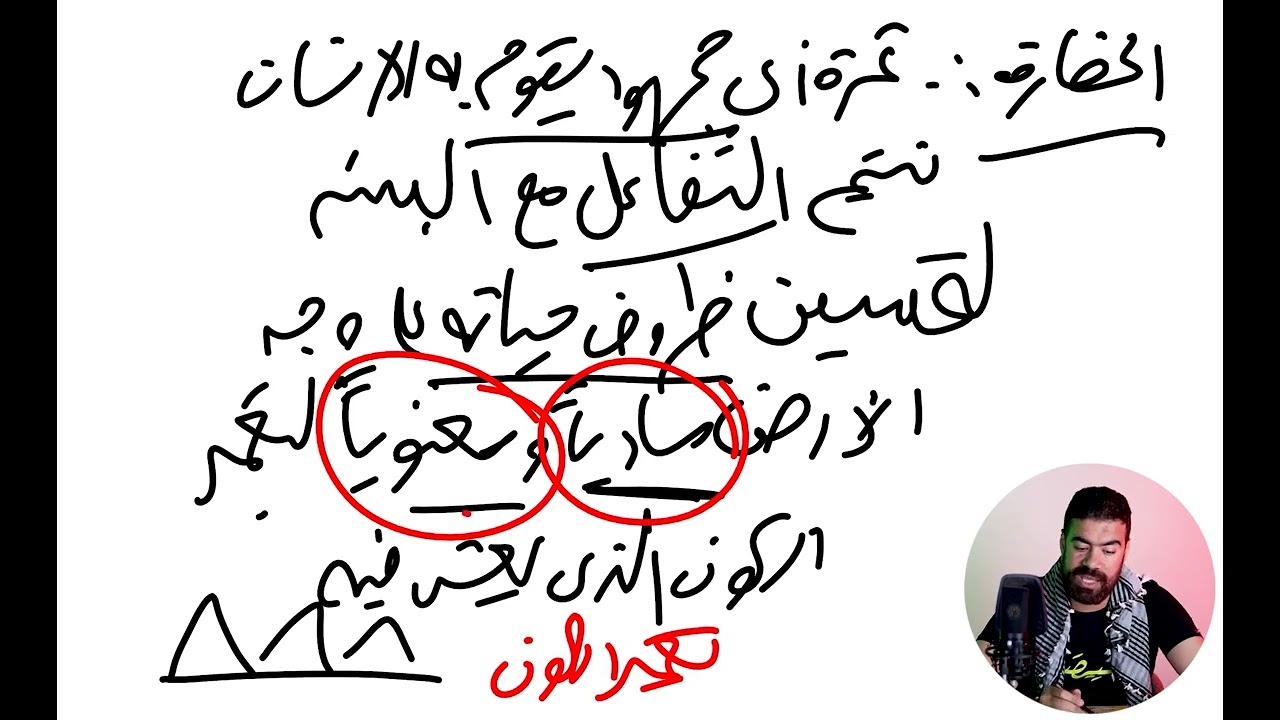 الحضارة :- ثمرة أى مجهود يقوم به الانسان
نتيجة التفاعل مع البيئة
لتحسين ظروف حياته على وجه
الأرض مادياً ومعنوياً لتعمير
الكون الذى يعيش فيه
تعمير الكون